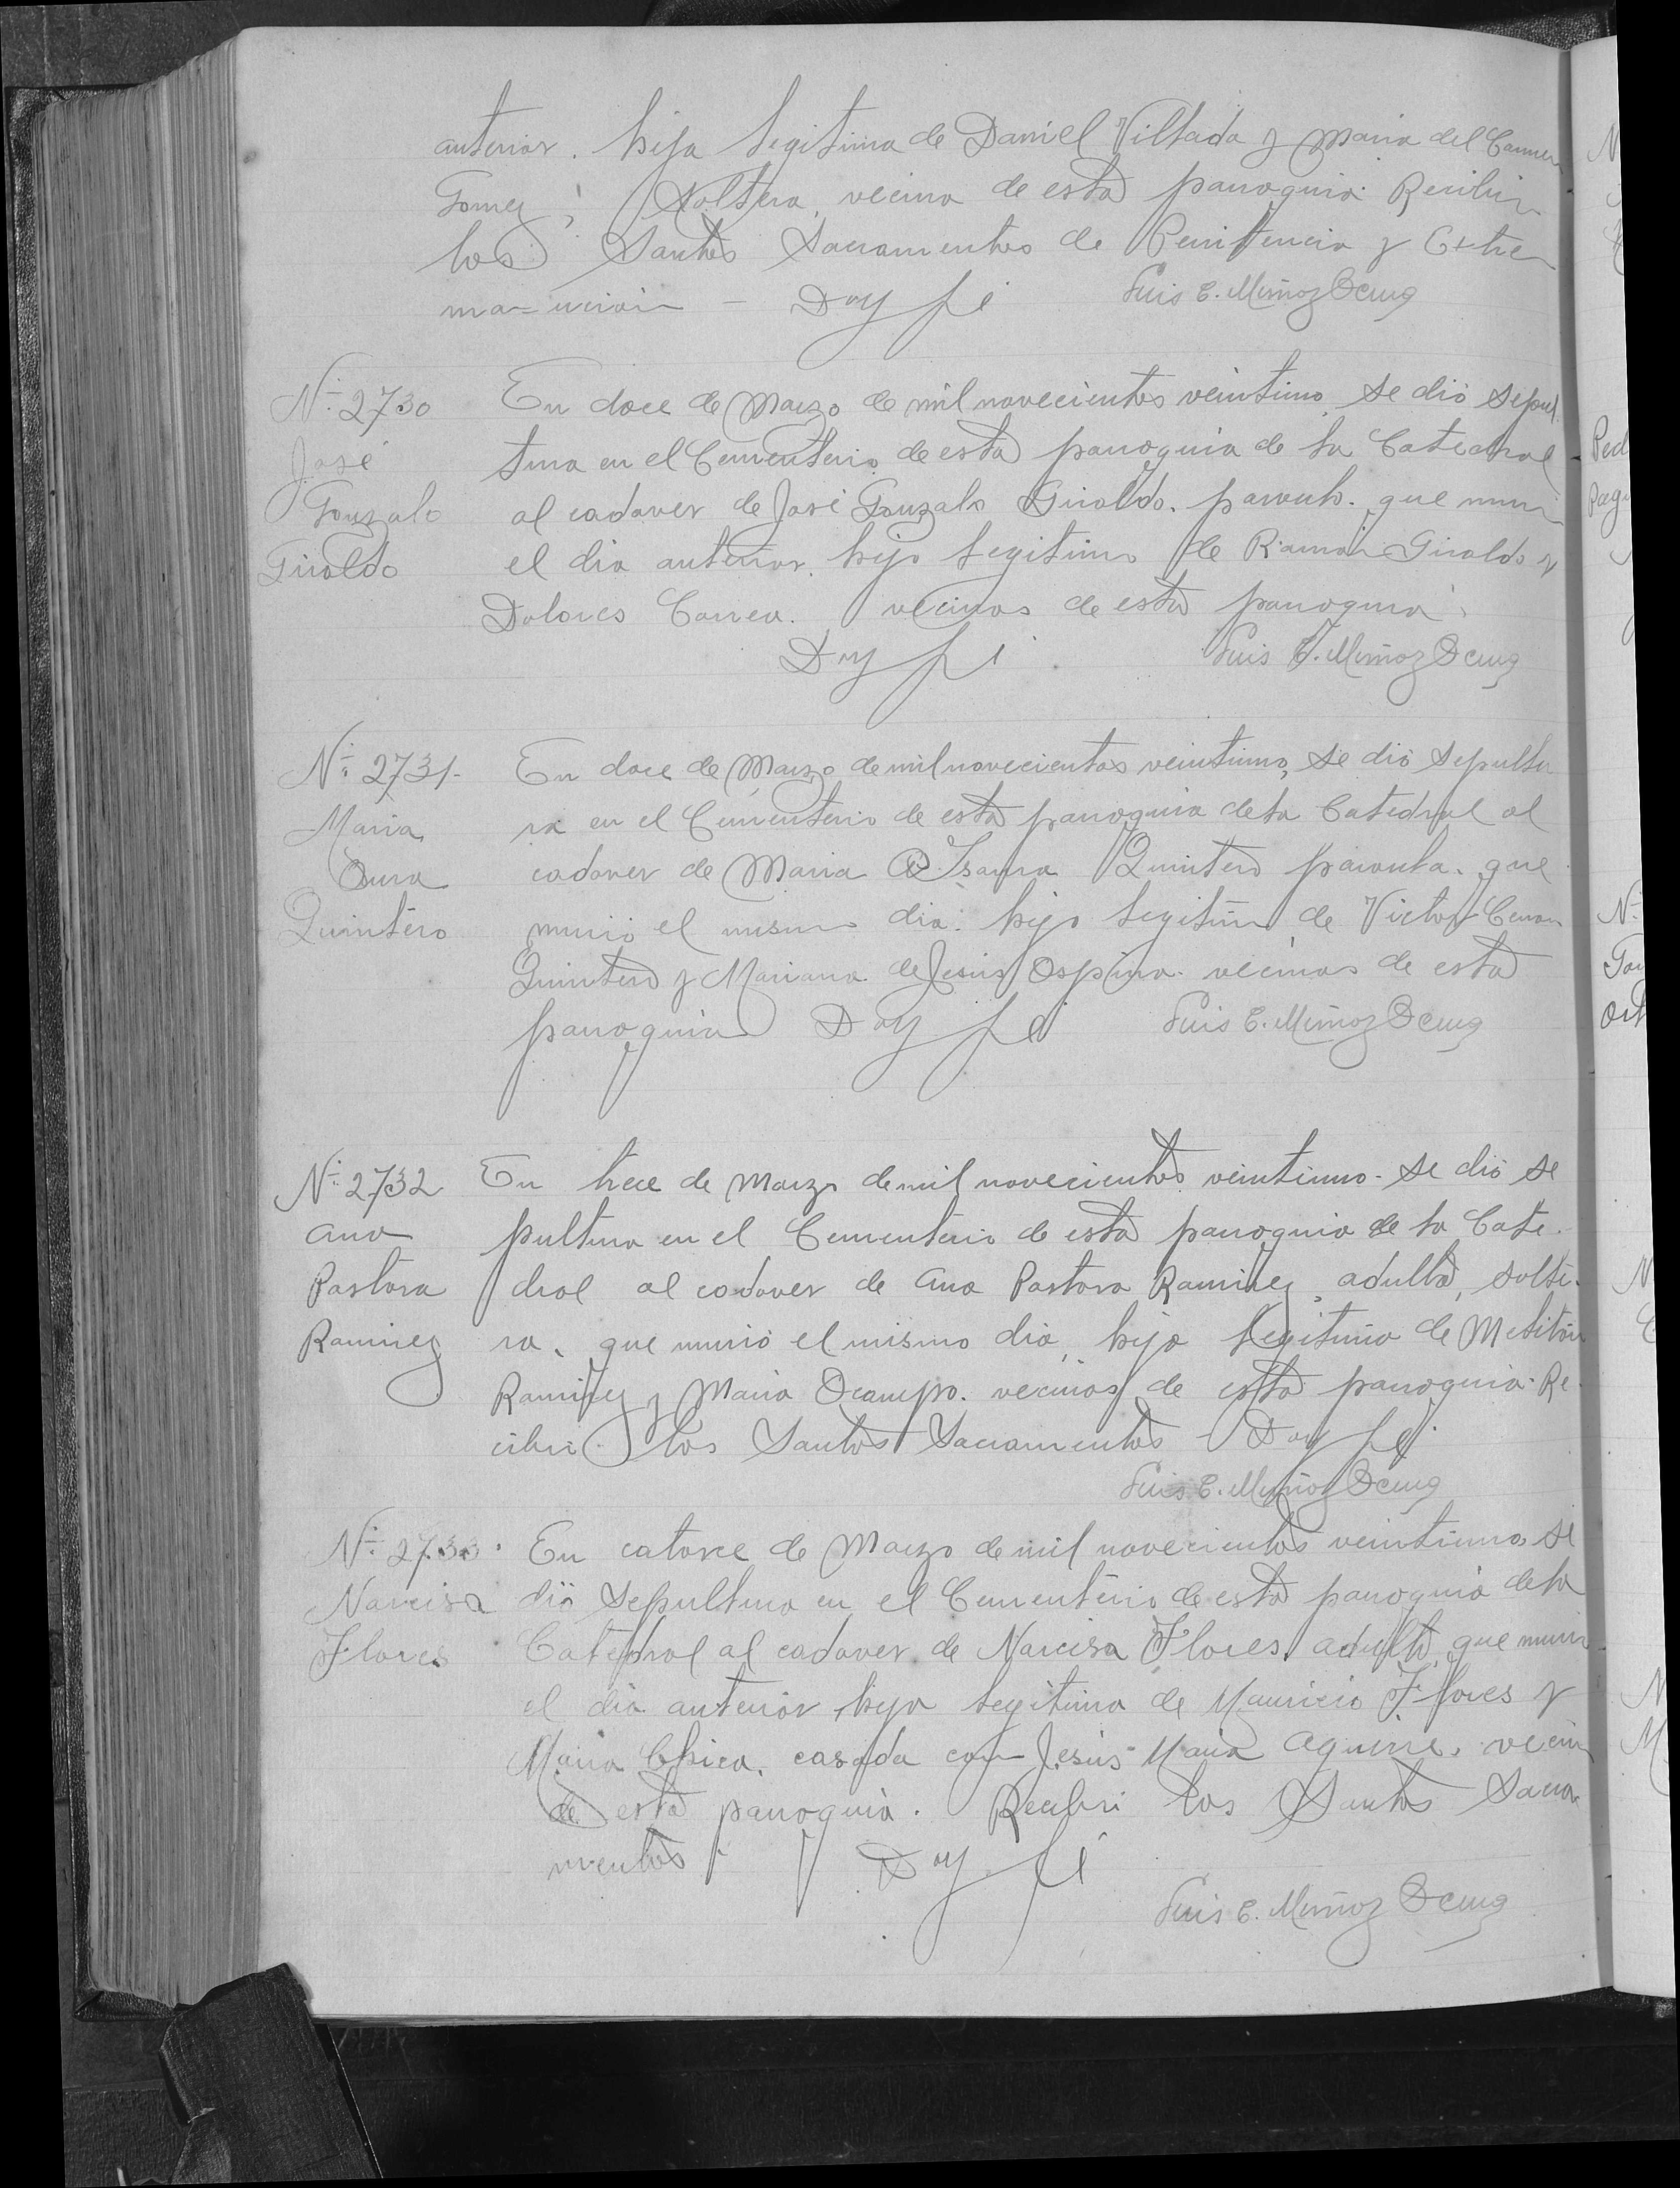 anterior. hija legitima de Daniel Villada y Maria del Carmen
Gomez, Soltera, vecina de esta parroquia. Recibió
los Santos Sacramentos de Penitencia y Extre
ma-uncion - Doy fé Luis E. Muñoz
Nº 2730
José
Gonzalo
Giraldo
En doce de Marzo de mil novecientos veintiuno, se dió sepul
tura en el Cementerio de esta parroquia de la Catedral
al cadaver de José Gonzalo Giraldo. parvulo. que murió
el dia anterior, hijo legitimo de Ramón Giraldo y
Dolores Correa. vecinos de esta parroquia.
Doy fé Luis E. Muñoz
Nº 2731-
Maria
Quintero
En doce de Marzo de mil novecientos veintiuno, se dió sepultu
ra en el Cementerio de esta parroquia de la Catedral al
cadaver de Maria Isaura Quintero parvula. que
murió el mismo dia. hija legitima de Victor
Quintero y Mariana de Jesús Ospina. vecinos de esta
parroquia Doy fé Luis E. Muñoz
Nº 2732
Ana
Pastora
Ramirez
En trece de Marzo de mil novecientos veintiuno. se dió se
pultura en el Cementerio de esta parroquia de la Cate.
dral al cadaver de Ana Pastora Ramirez, adulta, solte.
ra, que murió el mismo dia, hija legitima de Melitón
Ramirez y Maria Ocampo. vecinos de esta parroquia. Re
cibió los Santos Sacramentos Doy fé
Luis E. Muñoz
Nº 2733.
Narcisa
Flores
En catorce de Marzo de mil novecientos veintiuno, se
dió sepultura en el Cementerio de esta parroquia de la
Catedral al cadaver de Narcisa Flores, adulta, que murió
el dia anterior, hija legitima de Mauricio Flores y
Maria Chica, casada con Jesús Maria Aguirre, vecina
de esta parroquia. Recibió los Santos Sacra
mentos. Doy fé
Luis E. Muñoz